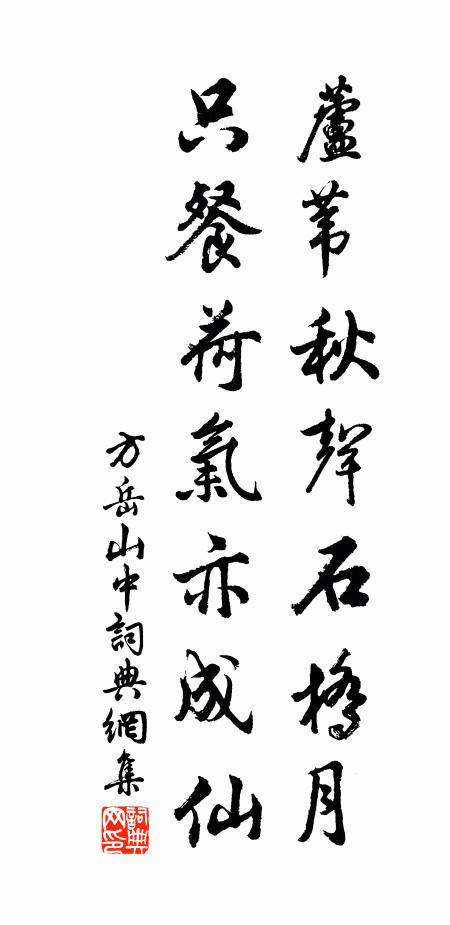 蘆葦秋聲石橋月
只餐荷氣亦成仙
方岳山中詞典網集
詞典網印